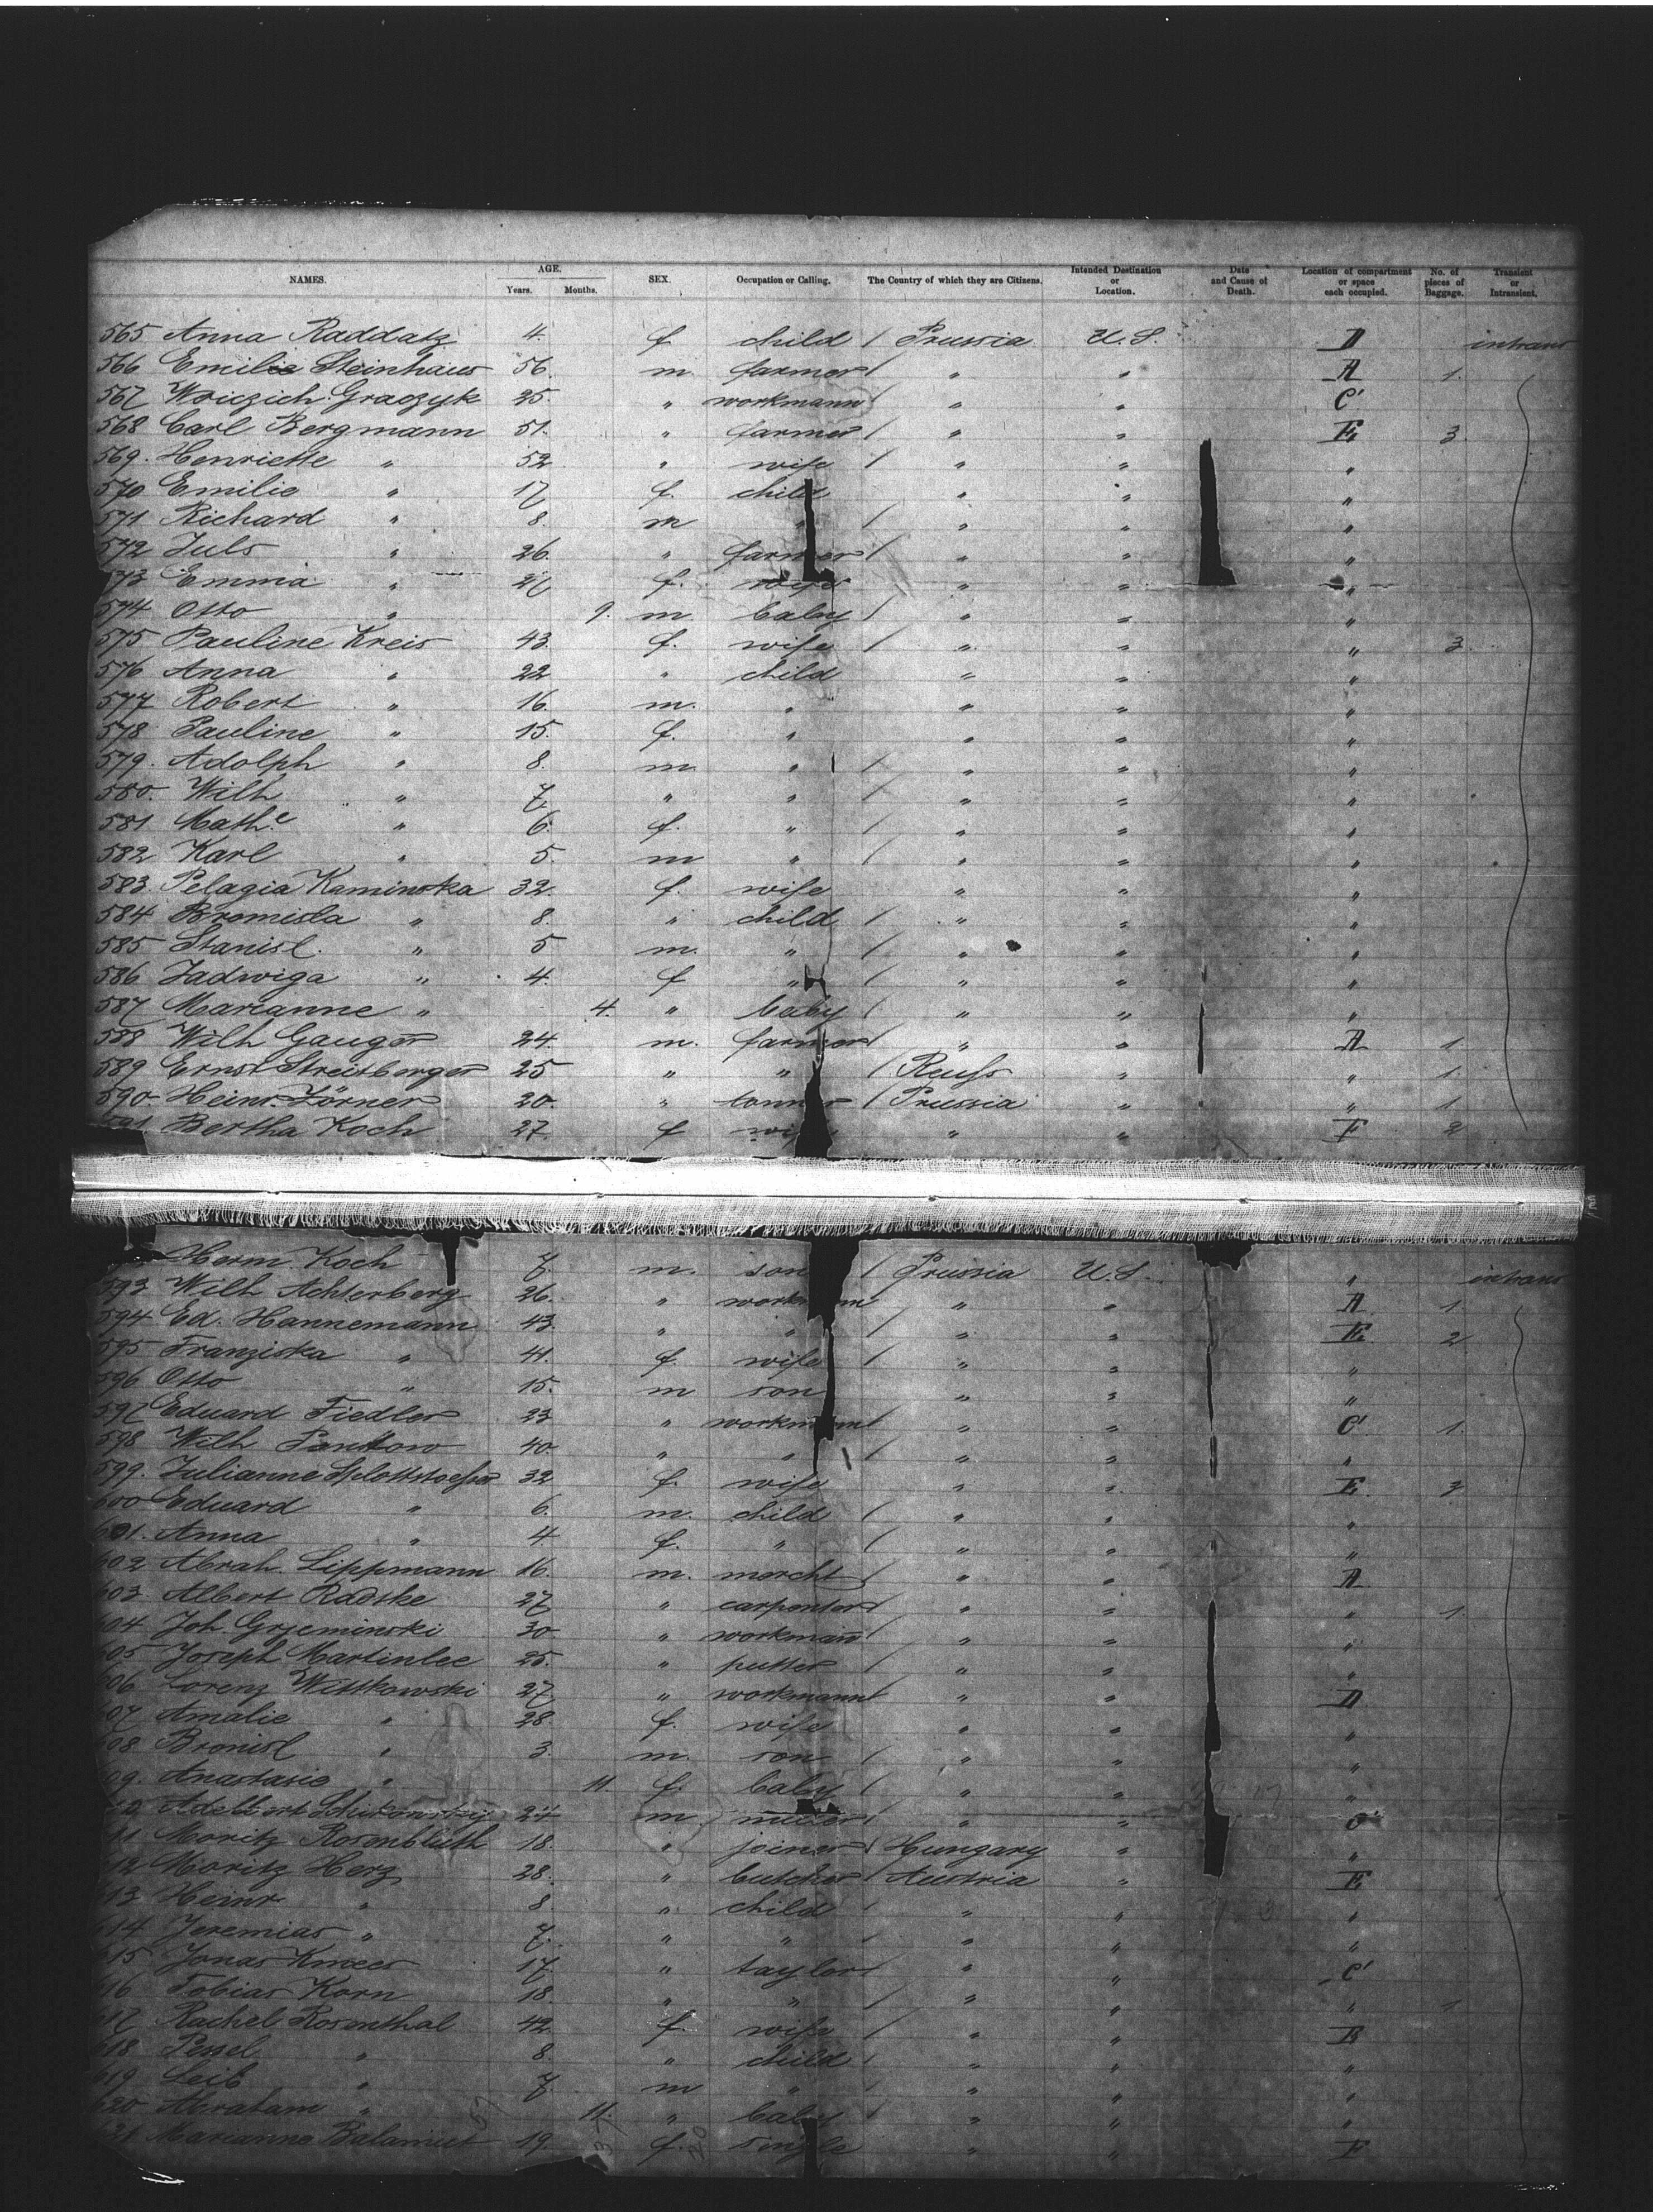 NAMES. AGE. Years. Months. SEX. Occupation or Calling. The Country of which they are Citizens. Intended Destination or Location. Date and Cause of Death. Location of compartment or space each occupied. No. of pieces of Baggage. Transient or Intransient.
565 Anna Raddatz 4. f child / Prussia U.S. D intrans
566 Emilie Steinhaus 56. m. farmer / " " A 1.
567 Woiczich Graczyk 25. " workmann " " C'
568 Carl Bergmann 51. " farmer / " " E 3
569. Henriette " 52 " wife / " " "
570 Emilie " 17 f. child " " "
571 Richard " 8. m " / " " "
572 Juls " 26. " farmer / " " "
573 Emma " f. wife " " "
574 Otto " 9. m baby / " " "
575 Pauline Kreis 43. f. wife / " " " 3
576 Anna " 22 " child " " "
577 Robert " 16. m. " " " "
578 Pauline " 15. f. " " " "
579. Adolph " 8. m " / " " "
580. Wilh " 7. " " / " " "
581 Math.e " 6. f. " / " " "
582 Karl " 5. m " / " " "
583 Pelagia Kaminska 32. f. wife " " "
584 Bromisla " 8. " child / " " "
585 Stanisl. " 5 m. " / " " "
586 Jadwiga " 4. f " / " " "
587 Marianne " 4. " baby / " " "
588 Wilh Gauger 24. m. farmer / " " A 1.
589 Ernst Streitberger 25 " " / Reuss " " 1.
590. Heinr. Zörner 20. " tanner / Prussia " " 1
591 Bertha Koch 27. f wife " " F 2
Herm Koch 7. m. son / Prussia U.S. " intrans
593 Wilh Achterberg 26. " workmann " " A 1.
594 Ed. Hannemann 43. " " / " " E 2
595 Franziska " 41. f. wife / " " "
596 Otto " 15. m son " " "
597 Eduard Fiedler 23 " workmann / " " C' 1.
598 Wilh Pantow 40. " " / " " "
599. Julianne 32 f. wife " " E. 3
600 Eduard " 6. m. child / " " "
601. Anna " 4. f. " / " " "
602 Abrah. Lippmann 16. m. mercht / " " A
603. Albert Radtke 27 " carpenter / " " " 1.
604 Joh. Grzeminski 30 " workmann / " " "
605 Joseph Martinlee 25. " putter / " " "
606 Lorenz Wittkowski 27 " workmann / " " D
607 Amalie " 28. f. wife " " "
608 Bronisl " 3. m. son / " " "
609. Anastasie " 11. f. baby / " " "
24 m miller / " " C'
611 Moritz Rosenblüth 18. " joiner / Hungary " "
612 Moritz Herz 28. " butcher / Austria " E
613 Heinr " 8. " child / " " "
614 Jeremias " 7. " " / " " "
615 Jonas 17. " taylor / " " C'
616 Tobias Korn 18. " " / " " " 1.
617 Rachel Rosenthal 42. f. wife / " " E
618 Pessel " 8. " child / " " "
619 Leib " 7. m " / " " "
620 Abraham " 11. " baby / " " "
621 Marianne 19. f. single " " F